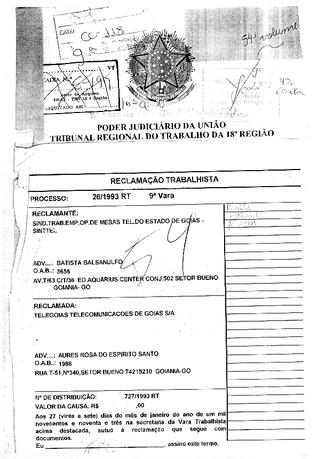 CAIXA
CC-113
54º volume
VT
PODER JUDICIÁRIO DA UNIÃO
TRIBUNAL REGIONAL DO TRABALHO DA 18ª REGIÃO
RECLAMAÇÃO TRABALHISTA
PROCESSO: 26/1993 RT 9ª Vara
RECLAMANTE:
SIND.TRAB.EMP.OP.DE MESAS TEL.DO ESTADO DE GOIAS -
SINTTEL
54
ADV...: BATISTA BALSANULFO
O.A.B.: 3656
AV.T/63 C/T/36 ED.AQUÁRIUS CENTER CONJ.502 SETOR BUENO
GOIANIA- GO
RECLAMADA:
TELEGOIAS TELECOMUNICACOES DE GOIAS S/A
ADV...: AURES ROSA DO ESPIRITO SANTO
O.A.B.: 1968
RUA T-51,Nº340,SETOR BUENO 74215210 GOIANIA-GO
Nº DE DISTRIBUIÇÃO: 727/1993 RT
VALOR DA CAUSA: R$ ,00
Aos 27 (vinte e sete) dias do mês de janeiro do ano de um mil
novecentos e noventa e três na secretaria da Vara Trabalhista
acima destacada, autuo a reclamação que segue com
documentos.
Eu assino este termo.